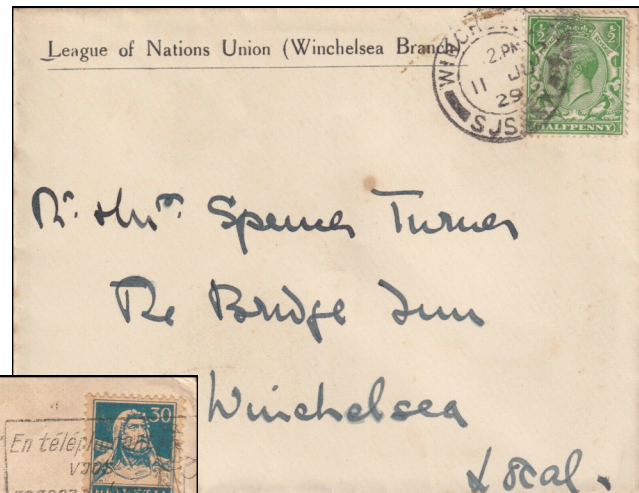 League of Nations Union (Winchelsea Branch)
WINCHELSEA
2.PM
11 JU
29
½ ½
HALFPENNY
Mr. & Mrs. Spencer Turner
The Bridge Inn
Winchelsea
Local.
30
En téléph
vous
HELVETIA